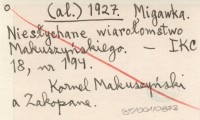 (al.) 1927. Migawka.
Niesłychane wiarołomstwo
Makuszyńskiego. — IKC
18, nr 194.
Kornel Makuszyński
a Zakopane.